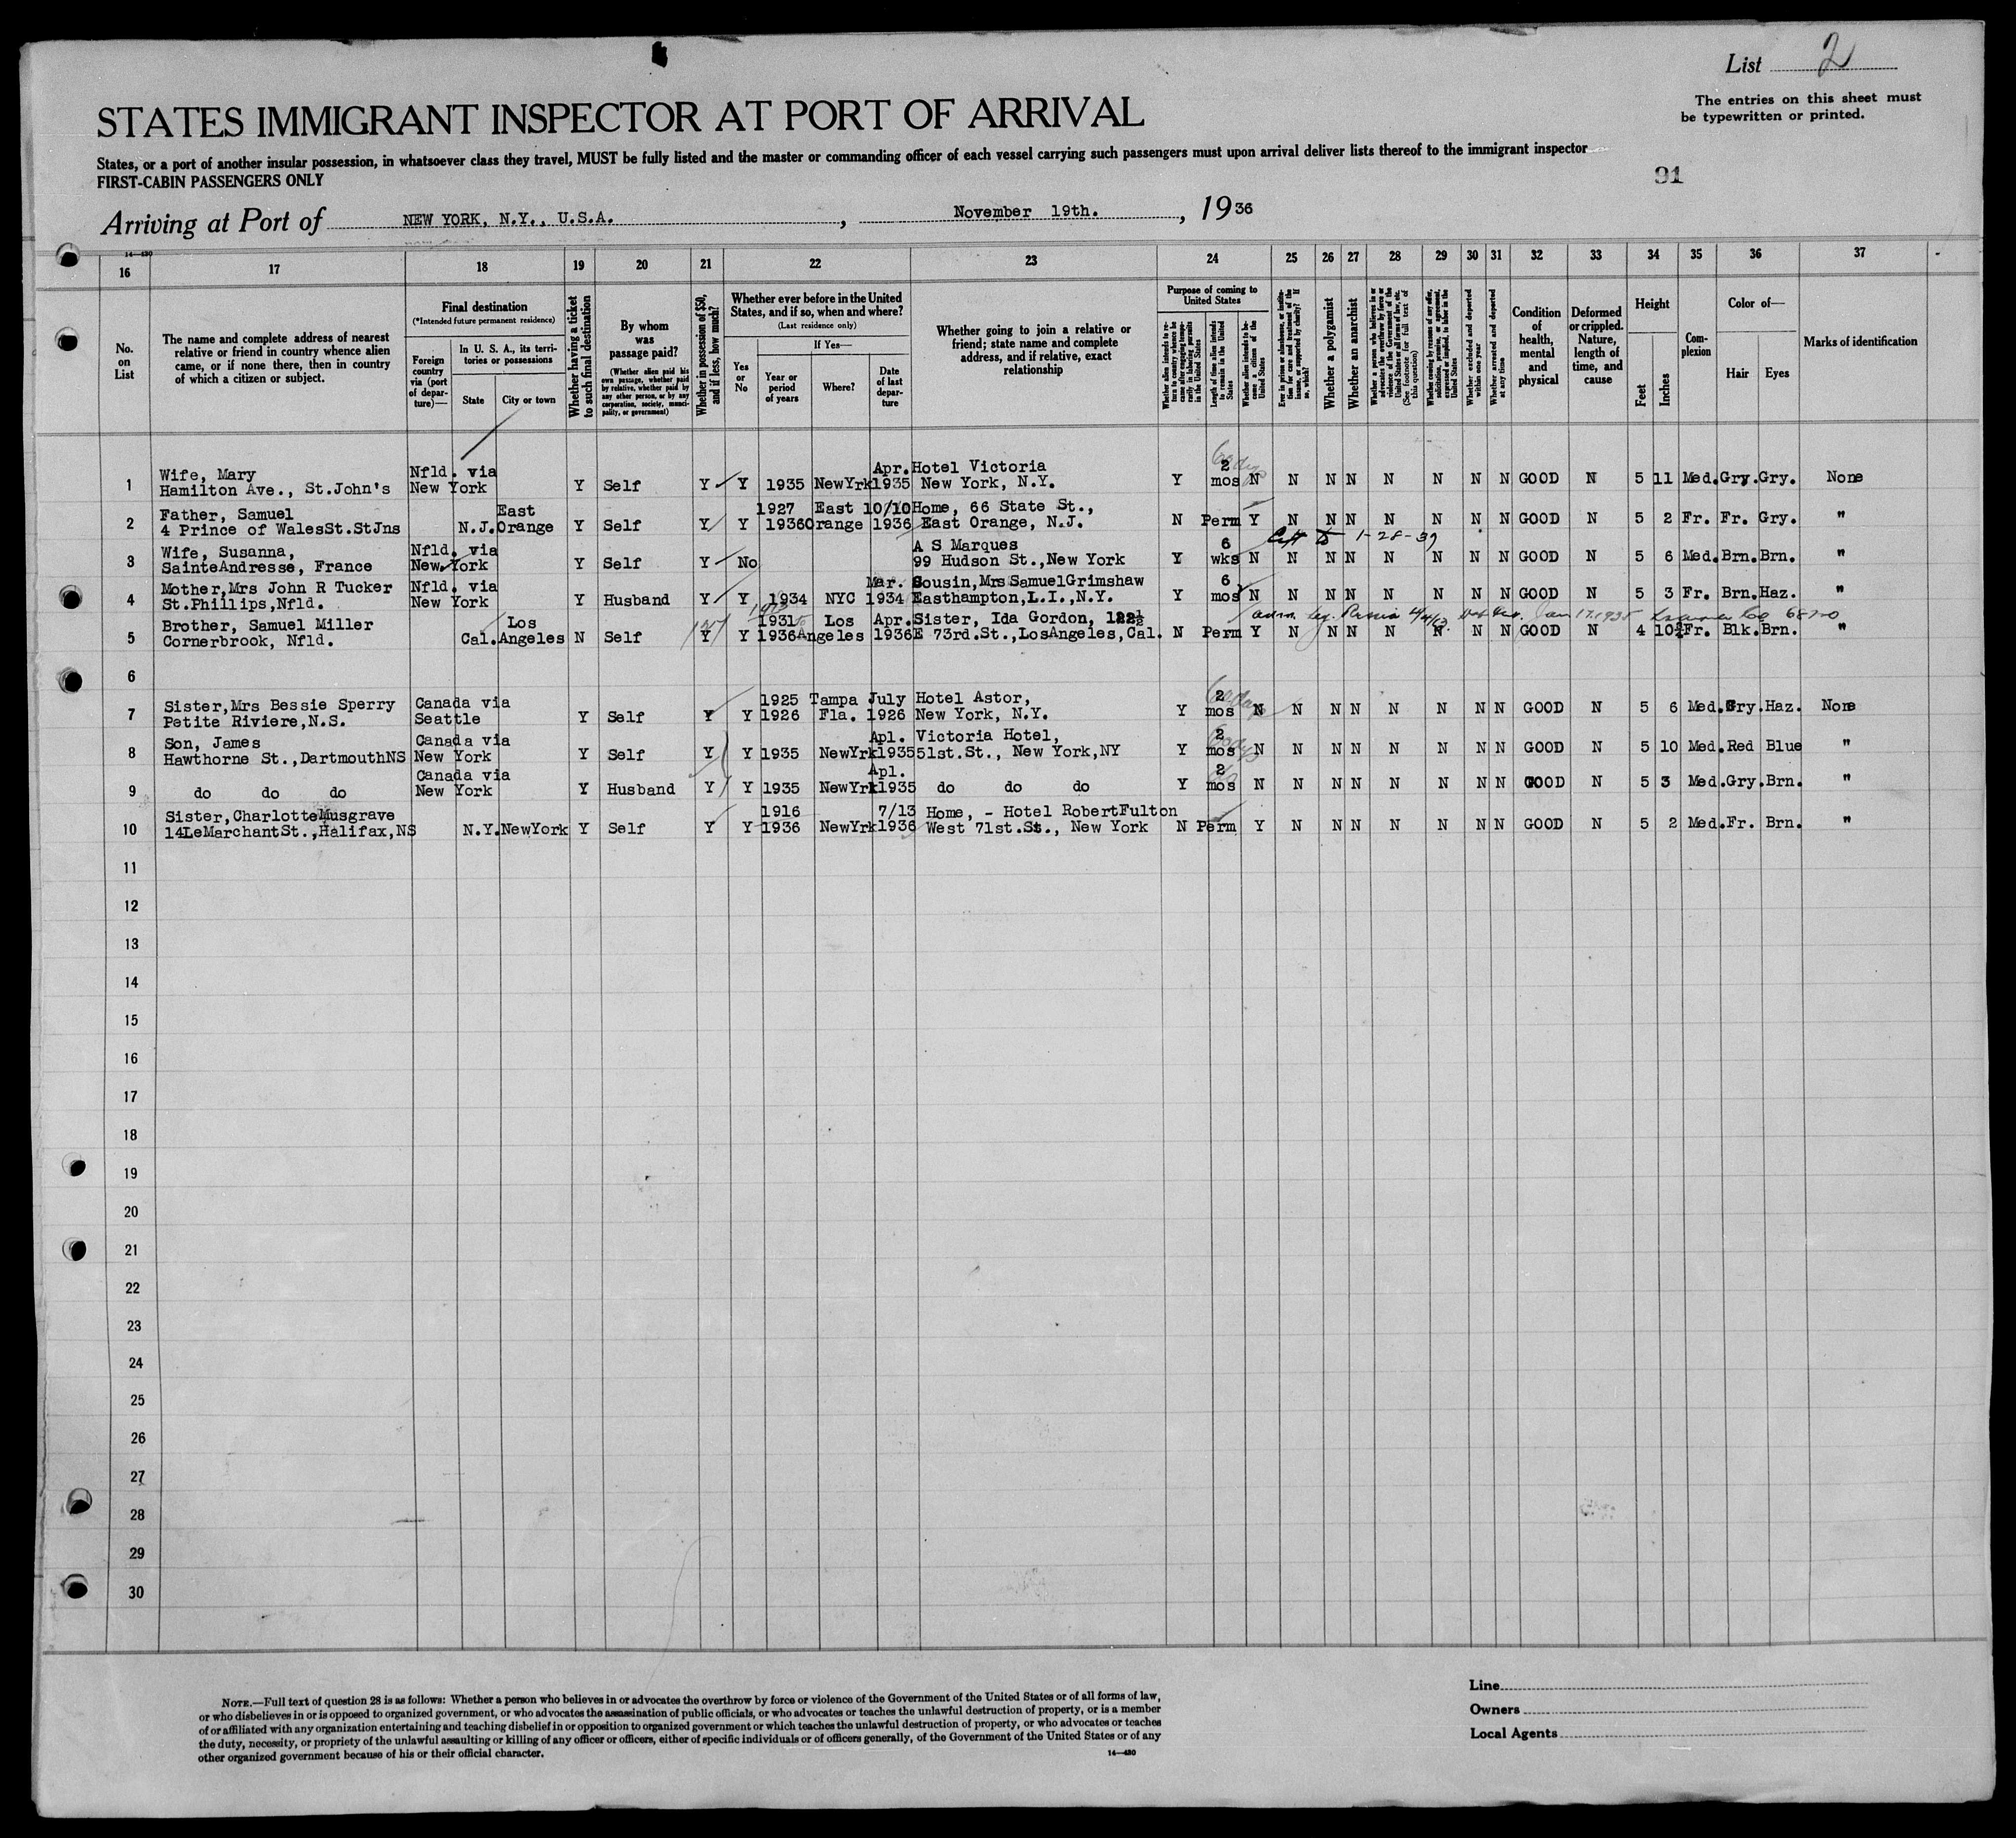 List 2
The entries on this sheet must
be typewritten or printed.
STATES IMMIGRANT INSPECTOR AT PORT OF ARRIVAL
States, or a port of another insular possession, in whatsoever class they travel, MUST be fully listed and the master or commanding officer of each vessel carrying such passengers must upon arrival deliver lists thereof to the immigrant inspector
FIRST-CABIN PASSENGERS ONLY
91
Arriving at Port of NEW YORK, N.Y., U.S.A., November 19th., 1936
14—430
16 17 18 19 20 21 22 23 24 25 26 27 28 29 30 31 32 33 34 35 36 37
No. on List
The name and complete address of nearest relative or friend in country whence alien came, or if none there, then in country of which a citizen or subject.
Final destination
(*Intended future permanent residence)
Foreign country via (port of departure)—
In U. S. A., its territories or possessions
State
City or town
Whether having a ticket to such final destination
By whom was passage paid?
(Whether alien paid his own passage, whether paid by relative, whether paid by any other person, or by any corporation, society, municipality, or government)
Whether in possession of $50, and if less, how much?
Whether ever before in the United States, and if so, when and where?
(Last residence only)
Yes or No
If Yes—
Year or period of years
Where?
Date of last departure
Whether going to join a relative or friend; state name and complete address, and if relative, exact relationship
Purpose of coming to United States
Whether alien intends to return to country whence he came after engaging temporarily in laboring pursuits in the United States
Length of time alien intends to remain in the United States
Whether alien intends to become a citizen of the United States
Ever in prison or almshouse, or institution for care and treatment of the insane, or supported by charity? If so, which?
Whether a polygamist
Whether an anarchist
Whether a person who believes in or advocates the overthrow by force or violence of the Government of the United States or all forms of law, etc. (See footnote for full text of this question)
Whether coming by reason of any offer, solicitation, promise, or agreement, expressed or implied, to labor in the United States
Whether excluded and deported within one year
Whether arrested and deported at any time
Condition of health, mental and physical
Deformed or crippled. Nature, length of time, and cause
Height
Feet
Inches
Complexion
Color of—
Hair
Eyes
Marks of identification
Wife, Mary Nfld. via Apr. Hotel Victoria 2
1 Hamilton Ave., St.John's New York Y Self Y Y 1935 NewYrk 1935 New York, N.Y. Y mos N N N N N N N N GOOD N 5 11 Med. Gry. Gry. None
Father, Samuel East 1927 East 10/10 Home, 66 State St.,
2 4 Prince of WalesSt.StJns N.J. Orange Y Self Y Y 1936 Orange 1936 East Orange, N.J. N Perm Y N N N N N N N GOOD N 5 2 Fr. Fr. Gry. "
Wife, Susanna, Nfld. via A S Marques 6 1-28-39
3 SainteAndresse, France New York Y Self Y No 99 Hudson St.,New York Y wks N N N N N N N N GOOD N 5 6 Med. Brn. Brn. "
Mother,Mrs John R Tucker Nfld. via Mar. Cousin,Mrs SamuelGrimshaw 6
4 St.Phillips,Nfld. New York Y Husband Y Y 1934 NYC 1934 Easthampton,L.I.,N.Y. Y mos N N N N N N N N GOOD N 5 3 Fr. Brn. Haz. "
Brother, Samuel Miller Los 1931 Los Apr. Sister, Ida Gordon, 122½
5 Cornerbrook, Nfld. Cal. Angeles N Self Y Y 1936 Angeles 1936 E 73rd.St.,LosAngeles,Cal. N Perm Y N N N N N N N GOOD N 4 10½ Fr. Blk. Brn. "
6
Sister,Mrs Bessie Sperry Canada via 1925 Tampa July Hotel Astor, 2
7 Petite Riviere,N.S. Seattle Y Self Y Y 1926 Fla. 1926 New York, N.Y. Y mos N N N N N N N N GOOD N 5 6 Med. Gry. Haz. None
Son, James Canada via Apl. Victoria Hotel, 2
8 Hawthorne St.,DartmouthNS New York Y Self Y Y 1935 NewYrk 1935 51st.St., New York,NY Y mos N N N N N N N N GOOD N 5 10 Med. Red Blue "
Canada via Apl. 2
9 do do do New York Y Husband Y Y 1935 NewYrk 1935 do do do Y mos N N N N N N N N GOOD N 5 3 Med. Gry. Brn. "
Sister,CharlotteMusgrave 1916 7/13 Home, - Hotel RobertFulton
10 14LeMarchantSt.,Halifax,NS N.Y. NewYork Y Self Y Y 1936 NewYrk 1936 West 71st.St., New York N Perm Y N N N N N N N GOOD N 5 2 Med. Fr. Brn. "
11
12
13
14
15
16
17
18
19
20
21
22
23
24
25
26
27
28
29
30
NOTE.—Full text of question 28 is as follows: Whether a person who believes in or advocates the overthrow by force or violence of the Government of the United States or of all forms of law,
or who disbelieves in or is opposed to organized government, or who advocates the assassination of public officials, or who advocates or teaches the unlawful destruction of property, or is a member
of or affiliated with any organization entertaining and teaching disbelief in or opposition to organized government or which teaches the unlawful destruction of property, or who advocates or teaches
the duty, necessity, or propriety of the unlawful assaulting or killing of any officer or officers, either of specific individuals or of officers generally, of the Government of the United States or of any
other organized government because of his or their official character.
14—430
Line
Owners
Local Agents